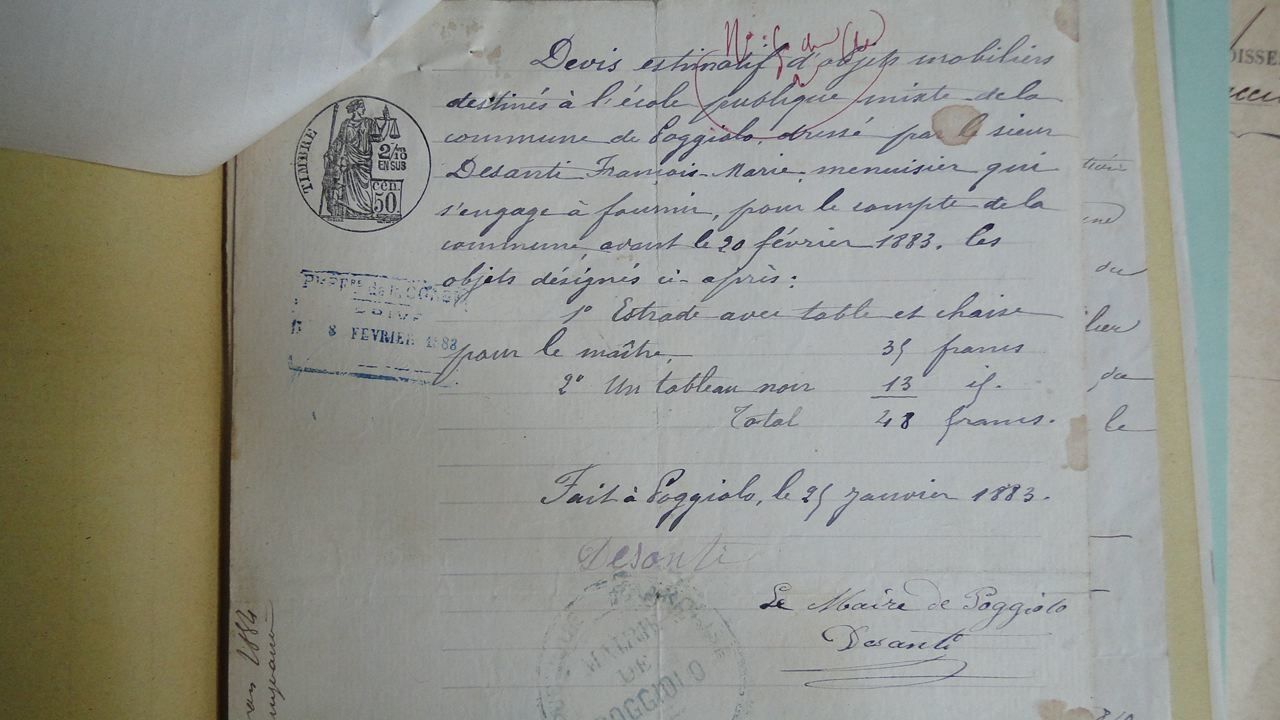 Devis estimatif d'objets mobiliers
destinés à l'école publique mixte de la
commune de Poggiolo, dressé par le sieur
Desanti François-Marie, menuisier qui
s'engage à fournir, pour le compte de la
commune, avant le 20 février 1883. les
objets désignés ci-après:
1° Estrade avec table et chaise
pour le maître, 35 francs
2° Un tableau noir 13 id.
Total 48 francs.
Fait à Poggiolo, le 25 Janvier 1883.
Desanti
Le Maire de Poggiolo
Desanti
TIMBRE
2/10
EN SUS
CEN
50
8 FEVRIER 1883
DE
POGGIOLO
1884
du
du
le